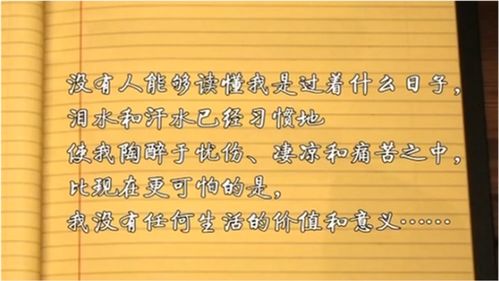 没有人能够读懂我是过着什么日子,
泪水和汗水已经习惯地
使我陶醉于忧伤、凄凉和痛苦之中,
比现在更可怕的是,
我没有任何生活的价值和意义……